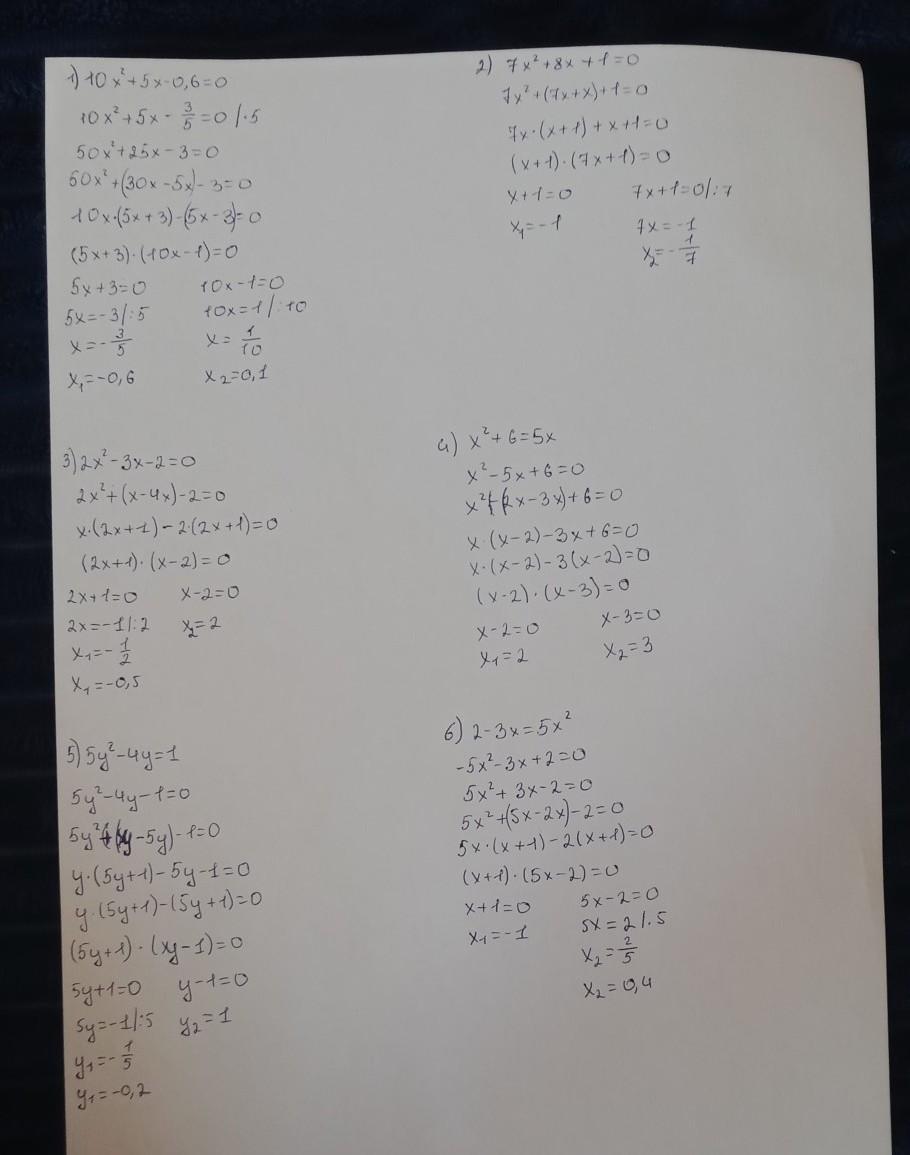 1) 10x²+5x-0,6=0
10x²+5x-3/5=0 /·5
50x²+25x-3=0
50x²+(30x-5x)-3=0
10x·(5x+3)-(5x-3)=0
(5x+3)·(10x-1)=0
5x+3=0 10x-1=0
5x=-3/:5 10x=1/:10
x=-3/5 x=1/10
x₁=-0,6 x₂=0,1
2) 7x²+8x+1=0
7x²+(7x+x)+1=0
7x·(x+1)+x+1=0
(x+1)·(7x+1)=0
x+1=0 7x+1=0/:7
x₁=-1 7x=-1
x₂=-1/7
3) 2x²-3x-2=0
2x²+(x-4x)-2=0
x·(2x+1)-2·(2x+1)=0
(2x+1)·(x-2)=0
2x+1=0 x-2=0
2x=-1/:2 x₂=2
x₁=-1/2
x₁=-0,5
4) x²+6=5x
x²-5x+6=0
x²+(-2x-3x)+6=0
x·(x-2)-3x+6=0
x·(x-2)-3(x-2)=0
(x-2)·(x-3)=0
x-2=0 x-3=0
x₁=2 x₂=3
5) 5y²-4y=1
5y²-4y-1=0
5y²+(y-5y)-1=0
y·(5y+1)-5y-1=0
y·(5y+1)-(5y+1)=0
(5y+1)·(xy-1)=0
5y+1=0 y-1=0
5y=-1/:5 y₂=1
y₁=-1/5
y₁=-0,2
6) 2-3x=5x²
-5x²-3x+2=0
5x²+3x-2=0
5x²+(5x-2x)-2=0
5x·(x+1)-2(x+1)=0
(x+1)·(5x-2)=0
x+1=0 5x-2=0
x₁=-1 5x=2/:5
x₂=2/5
x₂=0,4